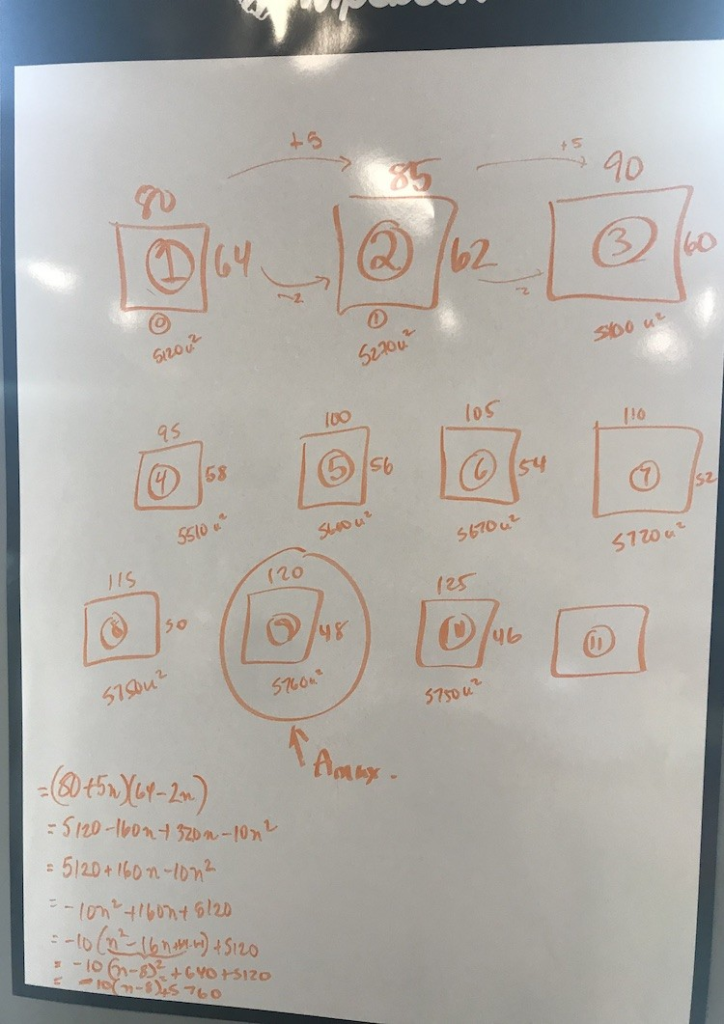 +5 +5
80 85 90
① 64 ② 62 ③ 60
-2 2
⓪ ①
5120u² 5270u² 5400 u²
95 100 105 110
④ 58 ⑤ 56 ⑥ 54 ⑦ 52
5510u² 5600u² 5670u² 5720u²
115 120 125
⑧ 50 ⑨ 48 ⑩ 46 ⑪
5750u² 5760u² 5750u²
Amax.
=(80+5n)(64-2n)
= 5120-160n+320n-10n²
= 5120+160n-10n²
= -10n²+160n+5120
= -10(n²-16n+64-64)+5120
= -10(n-8)²+640+5120
= -10(n-8)²+5760